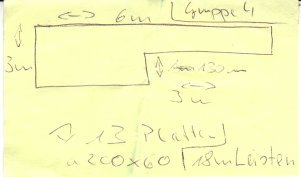 6m Gruppe 4
3m
130m
3m
13 Platten
200x60 18m Leisten